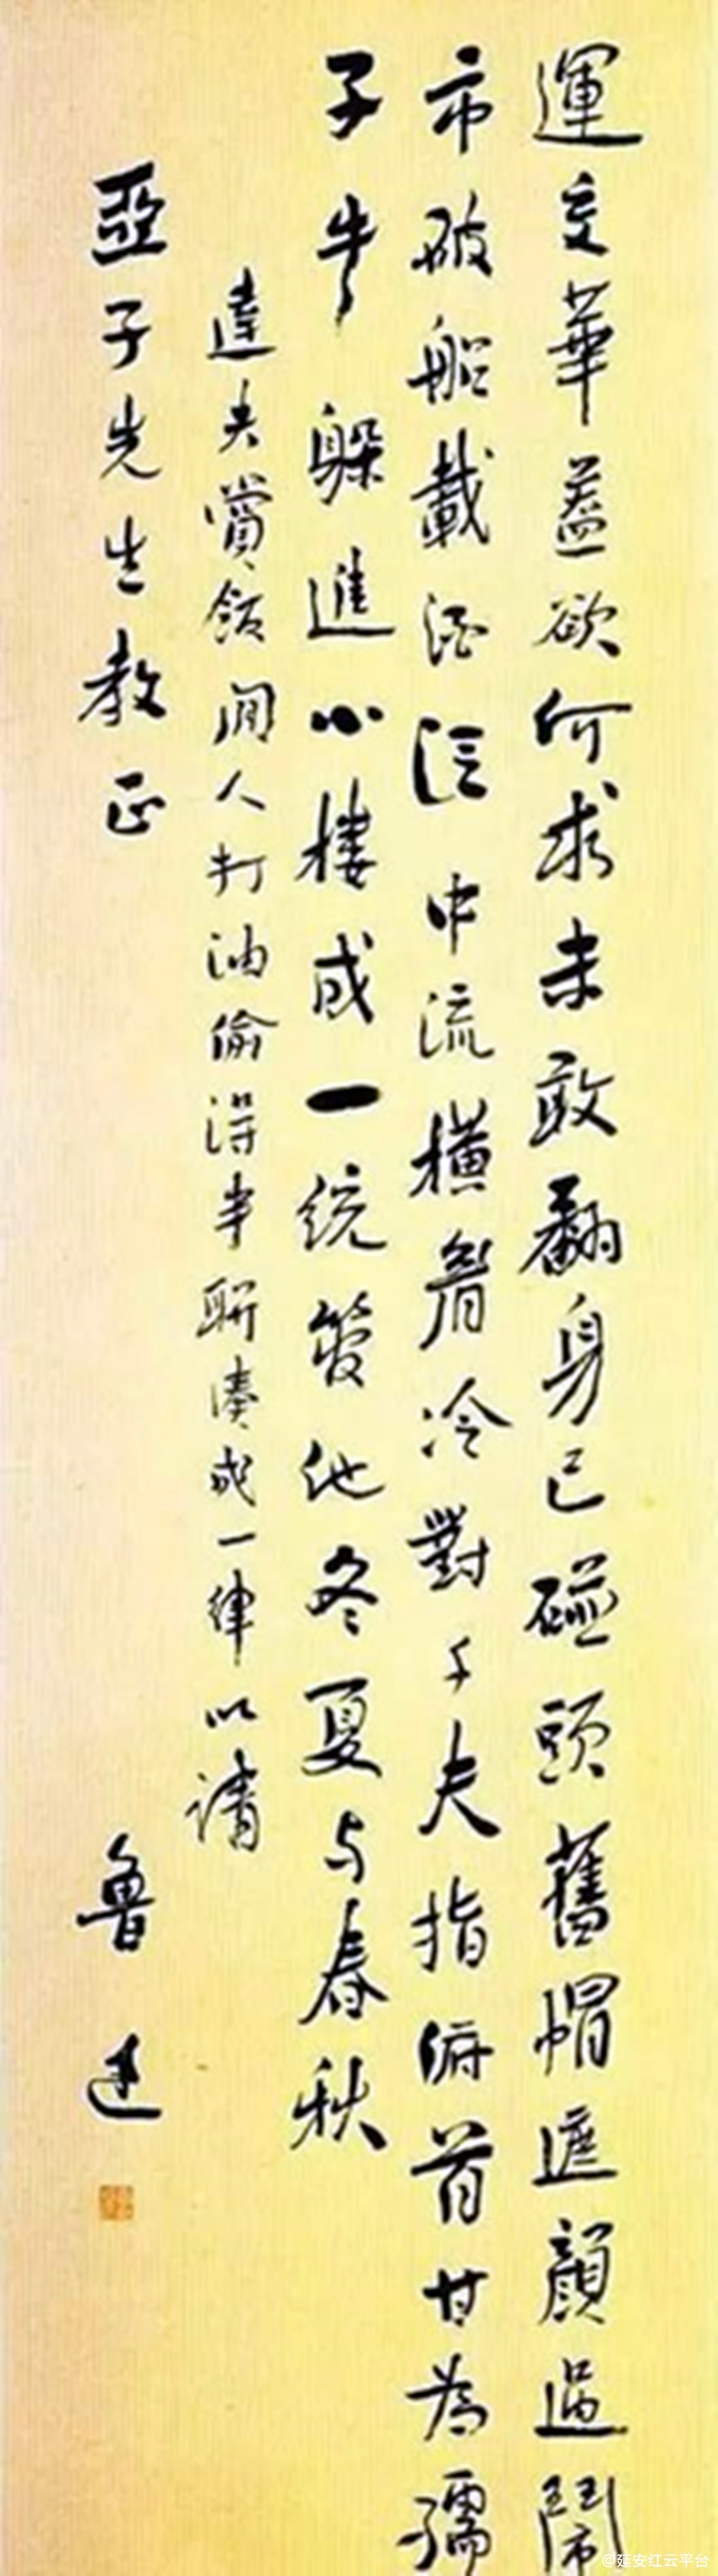 運交華蓋欲何求未敢翻身已碰頭舊帽遮顏過鬧
市破船載酒泛中流橫眉冷對千夫指俯首甘為孺
子牛躲進小樓成一統管他冬夏与春秋
達夫賞飯閒人打油偷得半聯湊成一律以請
亞子先生教正
魯迅
@延安红云平台